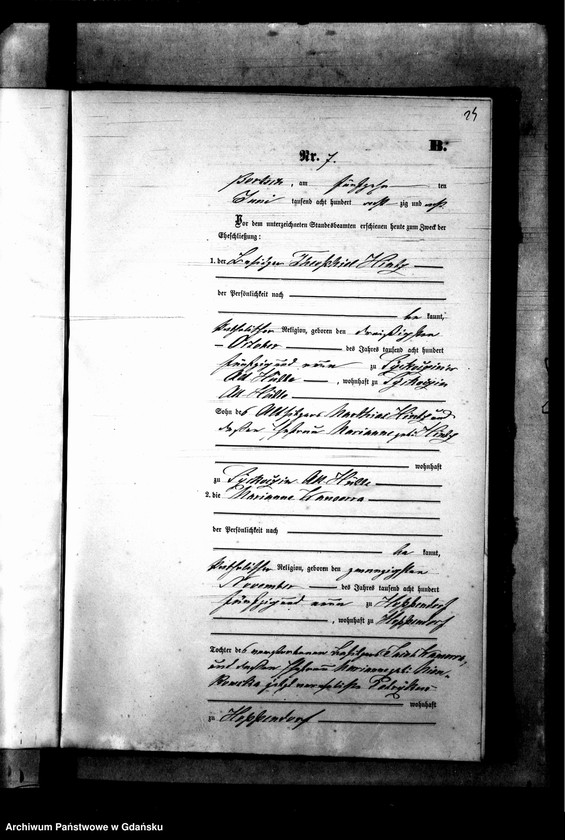 24
B.
Nr. 7.
am fünfzehn ten
Juni tausend acht hundert acht zig und acht
Vor dem unterzeichneten Standesbeamten erschienen heute zum Zweck der
Eheschließung:
1. der Besitzer Theophil Hintz
der Persönlichkeit nach
be kannt,
katholischer Religion, geboren den dreißigsten
Oktober des Jahres tausend acht hundert
fünfzig und neun zu
Abb. Hütte, wohnhaft zu
Abb. Hütte
Sohn des Altsitzers Mathias Hintz und
dessen Ehefrau Marianne geb. Hintz
wohnhaft
zu Abb. Hütte
2. die Marianne
der Persönlichkeit nach
be kannt,
katholischer Religion, geboren den zwanzigsten
November des Jahres tausend acht hundert
fünfzig und neun zu Hoppendorf
, wohnhaft zu Hoppendorf
Tochter des verstorbenen Besitzers
und dessen Ehefrau Marianne geb.
jetzt verehelichte
wohnhaft
zu Hoppendorf
Archiwum Państwowe w Gdańsku